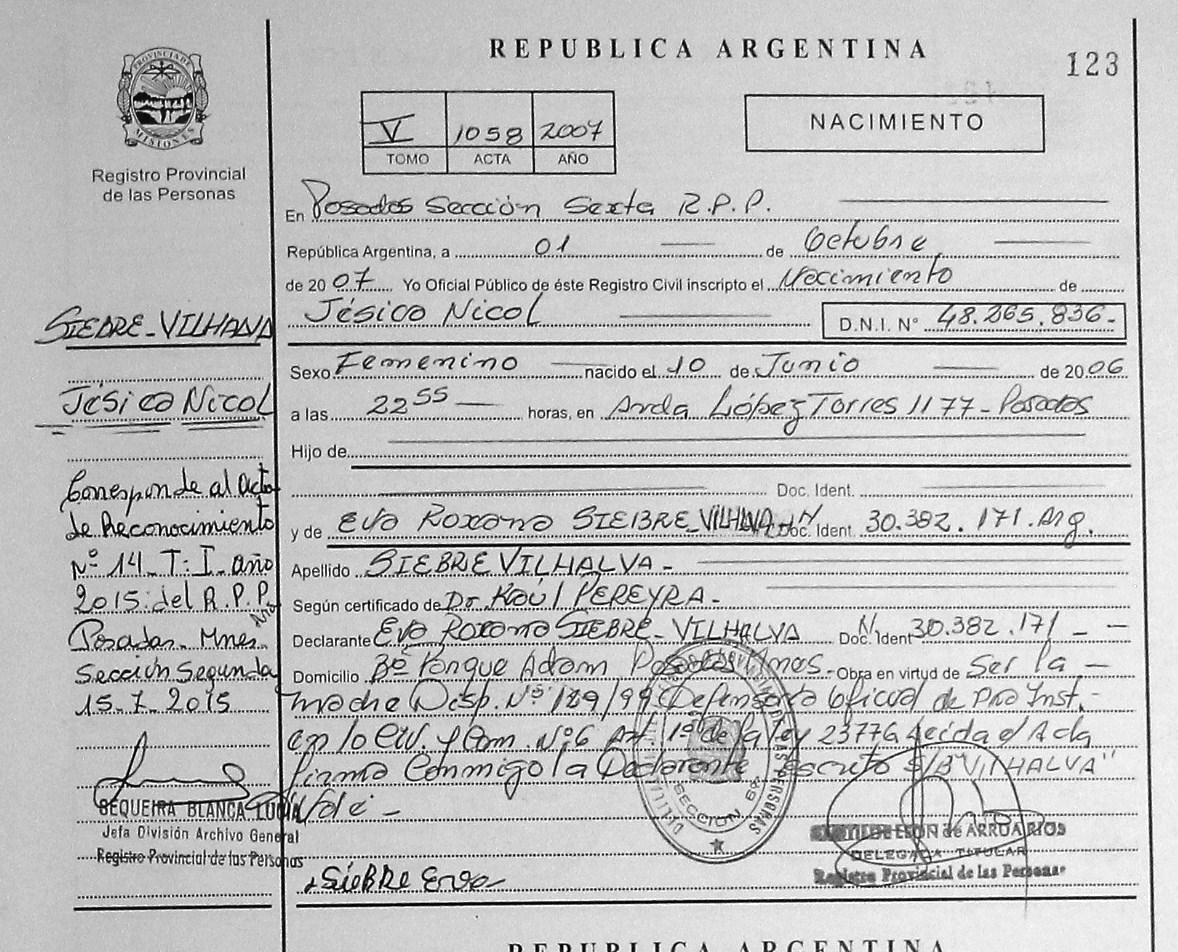 REPUBLICA ARGENTINA
123
PROVINCIA DE MISIONES
Registro Provincial
de las Personas
V 1058 2007
TOMO ACTA AÑO
NACIMIENTO
En Posadas Sección Sexta R.P.P.
República Argentina, a 01 de Octubre
de 2007. Yo Oficial Público de éste Registro Civil inscripto el Nacimiento de
Jésica Nicol D.N.I. N° 48.265.836-
Sexo Femenino nacido el 10 de Junio de 2006
a las 22 55 horas, en Avda López Torres 1177 - Posadas
Hijo de
Doc. Ident.
y de Eva Roxana SIEBRE_VILHALVA_ Doc. Ident. 30.382.171.Arg.
Apellido SIEBRE VILHALVA-
Según certificado de Dr. Raúl PEREYRA-
Declarante Eva Roxana SIEBRE_VILHALVA Doc. Ident 30.382.171_
Domicilio Bº Parque Adam Posadas Mnes- Obra en virtud de Ser la
madre Disp. Nº 129/99 Defensoría Oficial de Pro Inst.
en lo Civ. y Com. Nº6 Art. 1º de la Ley 23776 Leída el Acta
firma Conmigo la Declarante Escrito S/B "VILHALVA"
Vale-
SIEBRE Eva
SIEBRE_VILHALVA
Jésica Nicol
Corresponde al Acta
de Reconocimiento
Nº 14_T:I_año
2015 del R.P.P.
Posadas_Mnes_
Sección Segunda
15_7_2015
SEQUEIRA BLANCA LUCIA
Jefa División Archivo General
Registro Provincial de las Personas
SECCION 6ª
de ARRUA RIOS
DELEGADA TITULAR
Registro Provincial de las Personas
REPUBLICA ARGENTINA